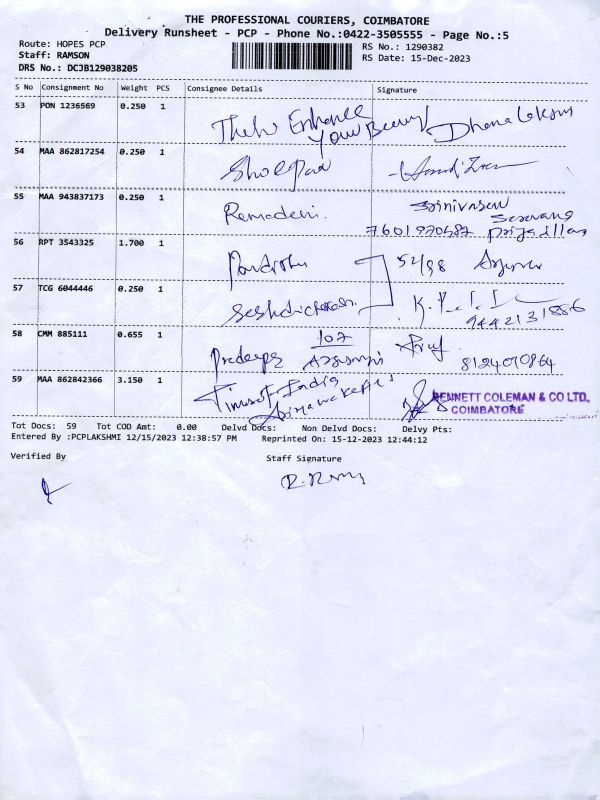 THE PROFESSIONAL COURIERS, COIMBATORE
Delivery Runsheet - PCP - Phone No.:0422-3505555 - Page No.:5
Route: HOPES PCP RS No.: 1290382
Staff: RAMSON RS Date: 15-Dec-2023
DRS No.: DCJB129038205
S No Consignment No Weight PCS Consignee Details Signature
53 PON 1236569 0.250 1
Enhance
Your
54 MAA 862817254 0.250 1
55 MAA 943837173 0.250 1 Srinivasan
Ramadevi.
56 RPT 3543325 1.700 1 52/98
57 TCG 6044446 0.250 1
9442131886
58 CMM 885111 0.655 1 107
8124070864
59 MAA 862842366 3.150 1 Times of India
BENNETT COLEMAN & CO LTD,
COIMBATORE
Tot Docs: 59 Tot COD Amt: 0.00 Delvd Docs: Non Delvd Docs: Delvy Pts:
Entered By :PCPLAKSHMI 12/15/2023 12:38:57 PM Reprinted On: 15-12-2023 12:44:12
Verified By Staff Signature